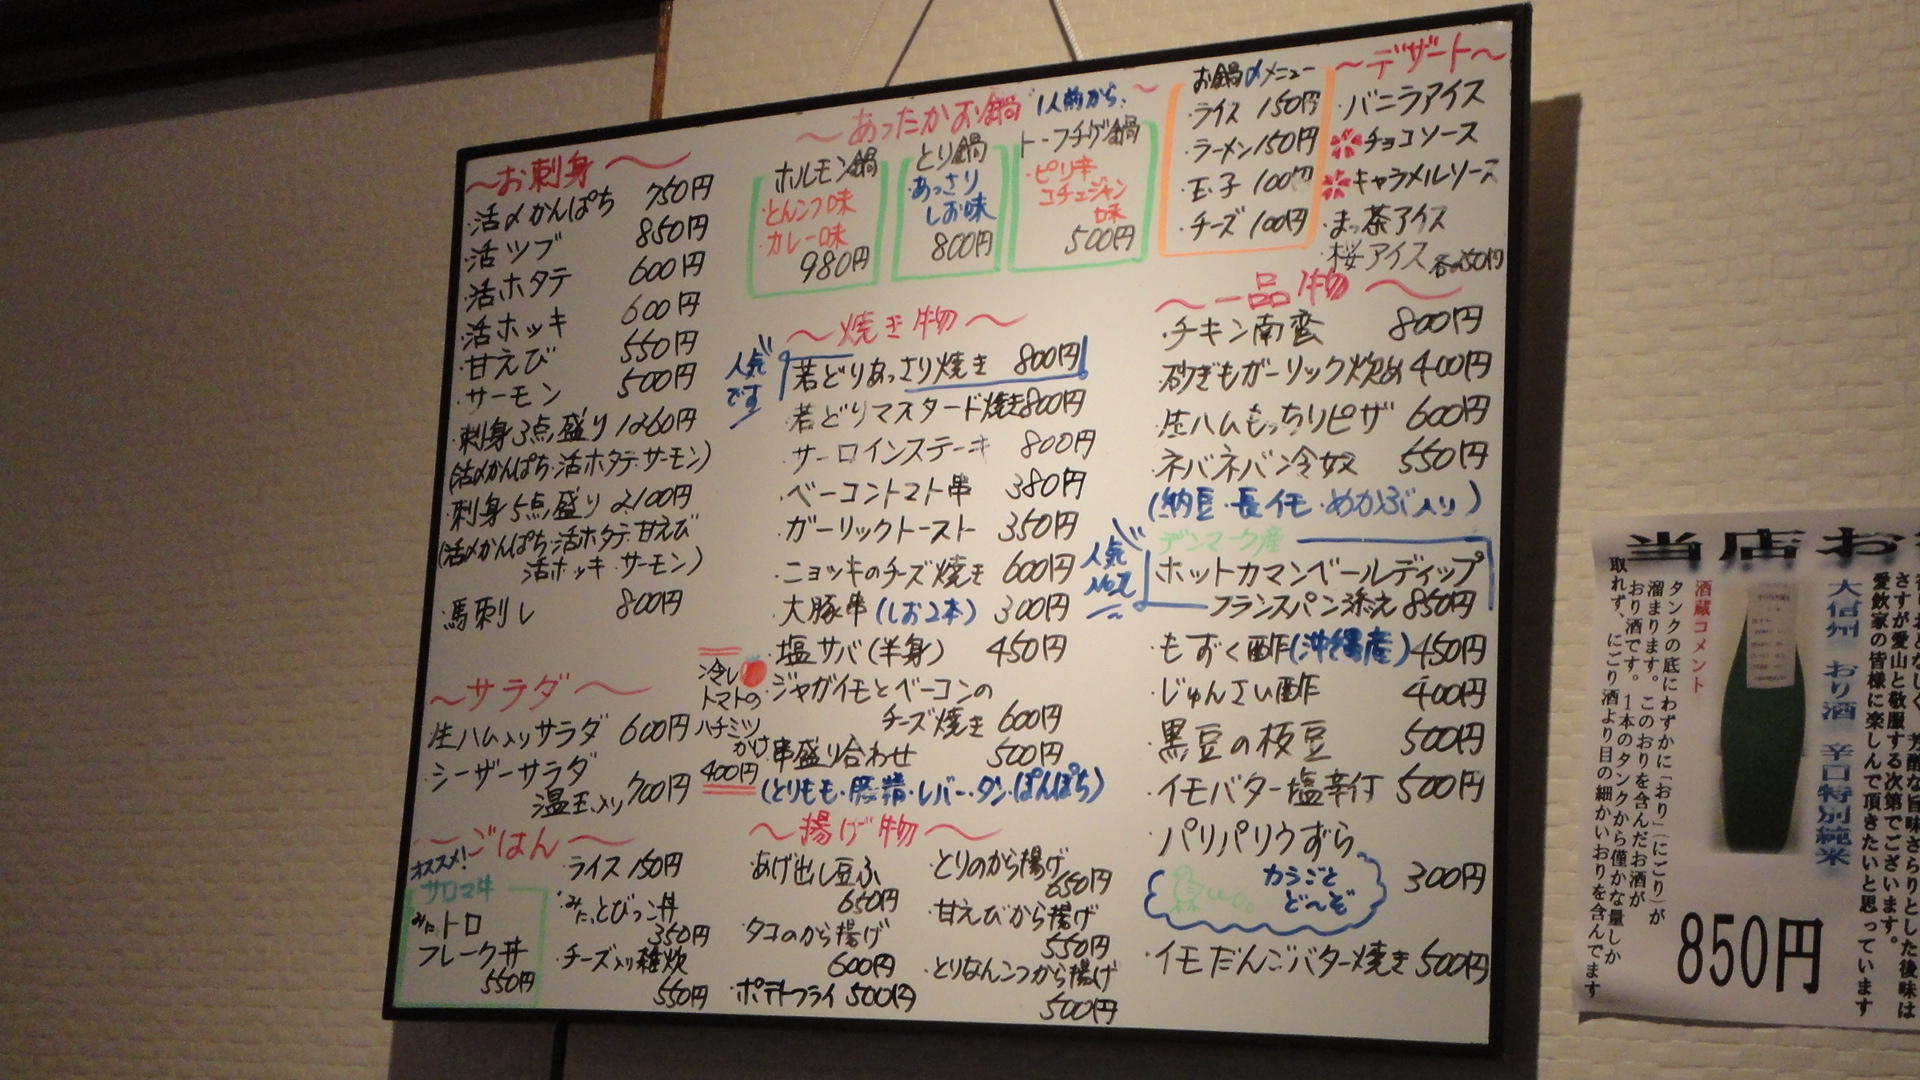 ～お刺身～
・活〆かんぱち 750円
・活ツブ 850円
・活ホタテ 600円
・活ホッキ 600円
・甘えび 550円
・サーモン 500円
・刺身3点盛り 1260円
(活〆かんぱち・活ホタテ・サーモン)
・刺身5点盛り 2100円
(活〆かんぱち・活ホタテ・甘えび
活ホッキ・サーモン)
・馬刺し 800円
～サラダ～
・生ハム入りサラダ 600円
・シーザーサラダ
温玉入り 700円
冷し
トマトの
ハチミツ
がけ
400円
～ごはん～
オススメ!
サロマ牛
みにトロ
フレーク丼
550円
・ライス 150円
・みにとびっこ丼
350円
・チーズ入り雑炊
550円
～あったかお鍋 1人前から ～
ホルモン鍋
・とんこつ味
・カレー味
980円
とり鍋
・あっさり
しお味
800円
トーフチゲ鍋
・ピリ辛
コチュジャン
味
500円
お鍋〆メニュー
・ライス 150円
・ラーメン 150円
・玉子 100円
・チーズ 100円
～デザート～
・バニラアイス
チョコソース
キャラメルソース
・まっ茶アイス
・桜アイス 各250円
～焼き物～
人気
です
・若どりあっさり焼き 800円
・若どりマスタード焼き 800円
・サーロインステーキ 800円
・ベーコントマト串 380円
・ガーリックトースト 350円
・ニョッキのチーズ焼き 600円
・大豚串(しお2本) 300円
・塩サバ(半身) 450円
・ジャガイモとベーコンの
チーズ焼き 600円
・串盛り合わせ 500円
(とりもも・豚精・レバー・タン・ぽんぽち)
～揚げ物～
・あげ出し豆ふ
650円
・タコのから揚げ
600円
・ポテトフライ 500円
・とりのから揚げ
650円
・甘えびから揚げ
550円
・とりなんこつから揚げ
500円
～一品物～
・チキン南蛮 800円
・砂ぎもガーリック炒め 400円
・生ハムもっちりピザ 600円
・ネバネバ冷奴 550円
(納豆・長イモ・めかぶ入り)
人気
デンマーク産
・ホットカマンベールディップ
フランスパン添え 850円
・もずく酢(沖縄産) 450円
・じゅんさい酢 400円
・黒豆の枝豆 500円
・イモバター塩辛付 500円
・パリパリうずら
300円
カラごと
ど～ぞ
・イモだんごバター焼き 500円
当店お
さすが愛山と敬服する次第でございます。
愛飲家の皆様に楽しんで頂きたいと思っています
大信州 おり酒 辛口特別純米
酒蔵コメント
タンクの底にわずかに「おり」(にごり)が
溜まります。このおりを含んだお酒が
おり酒です。1本のタンクから僅かな量しか
取れず、にごり酒より目の細かいおりを含んでます
850円